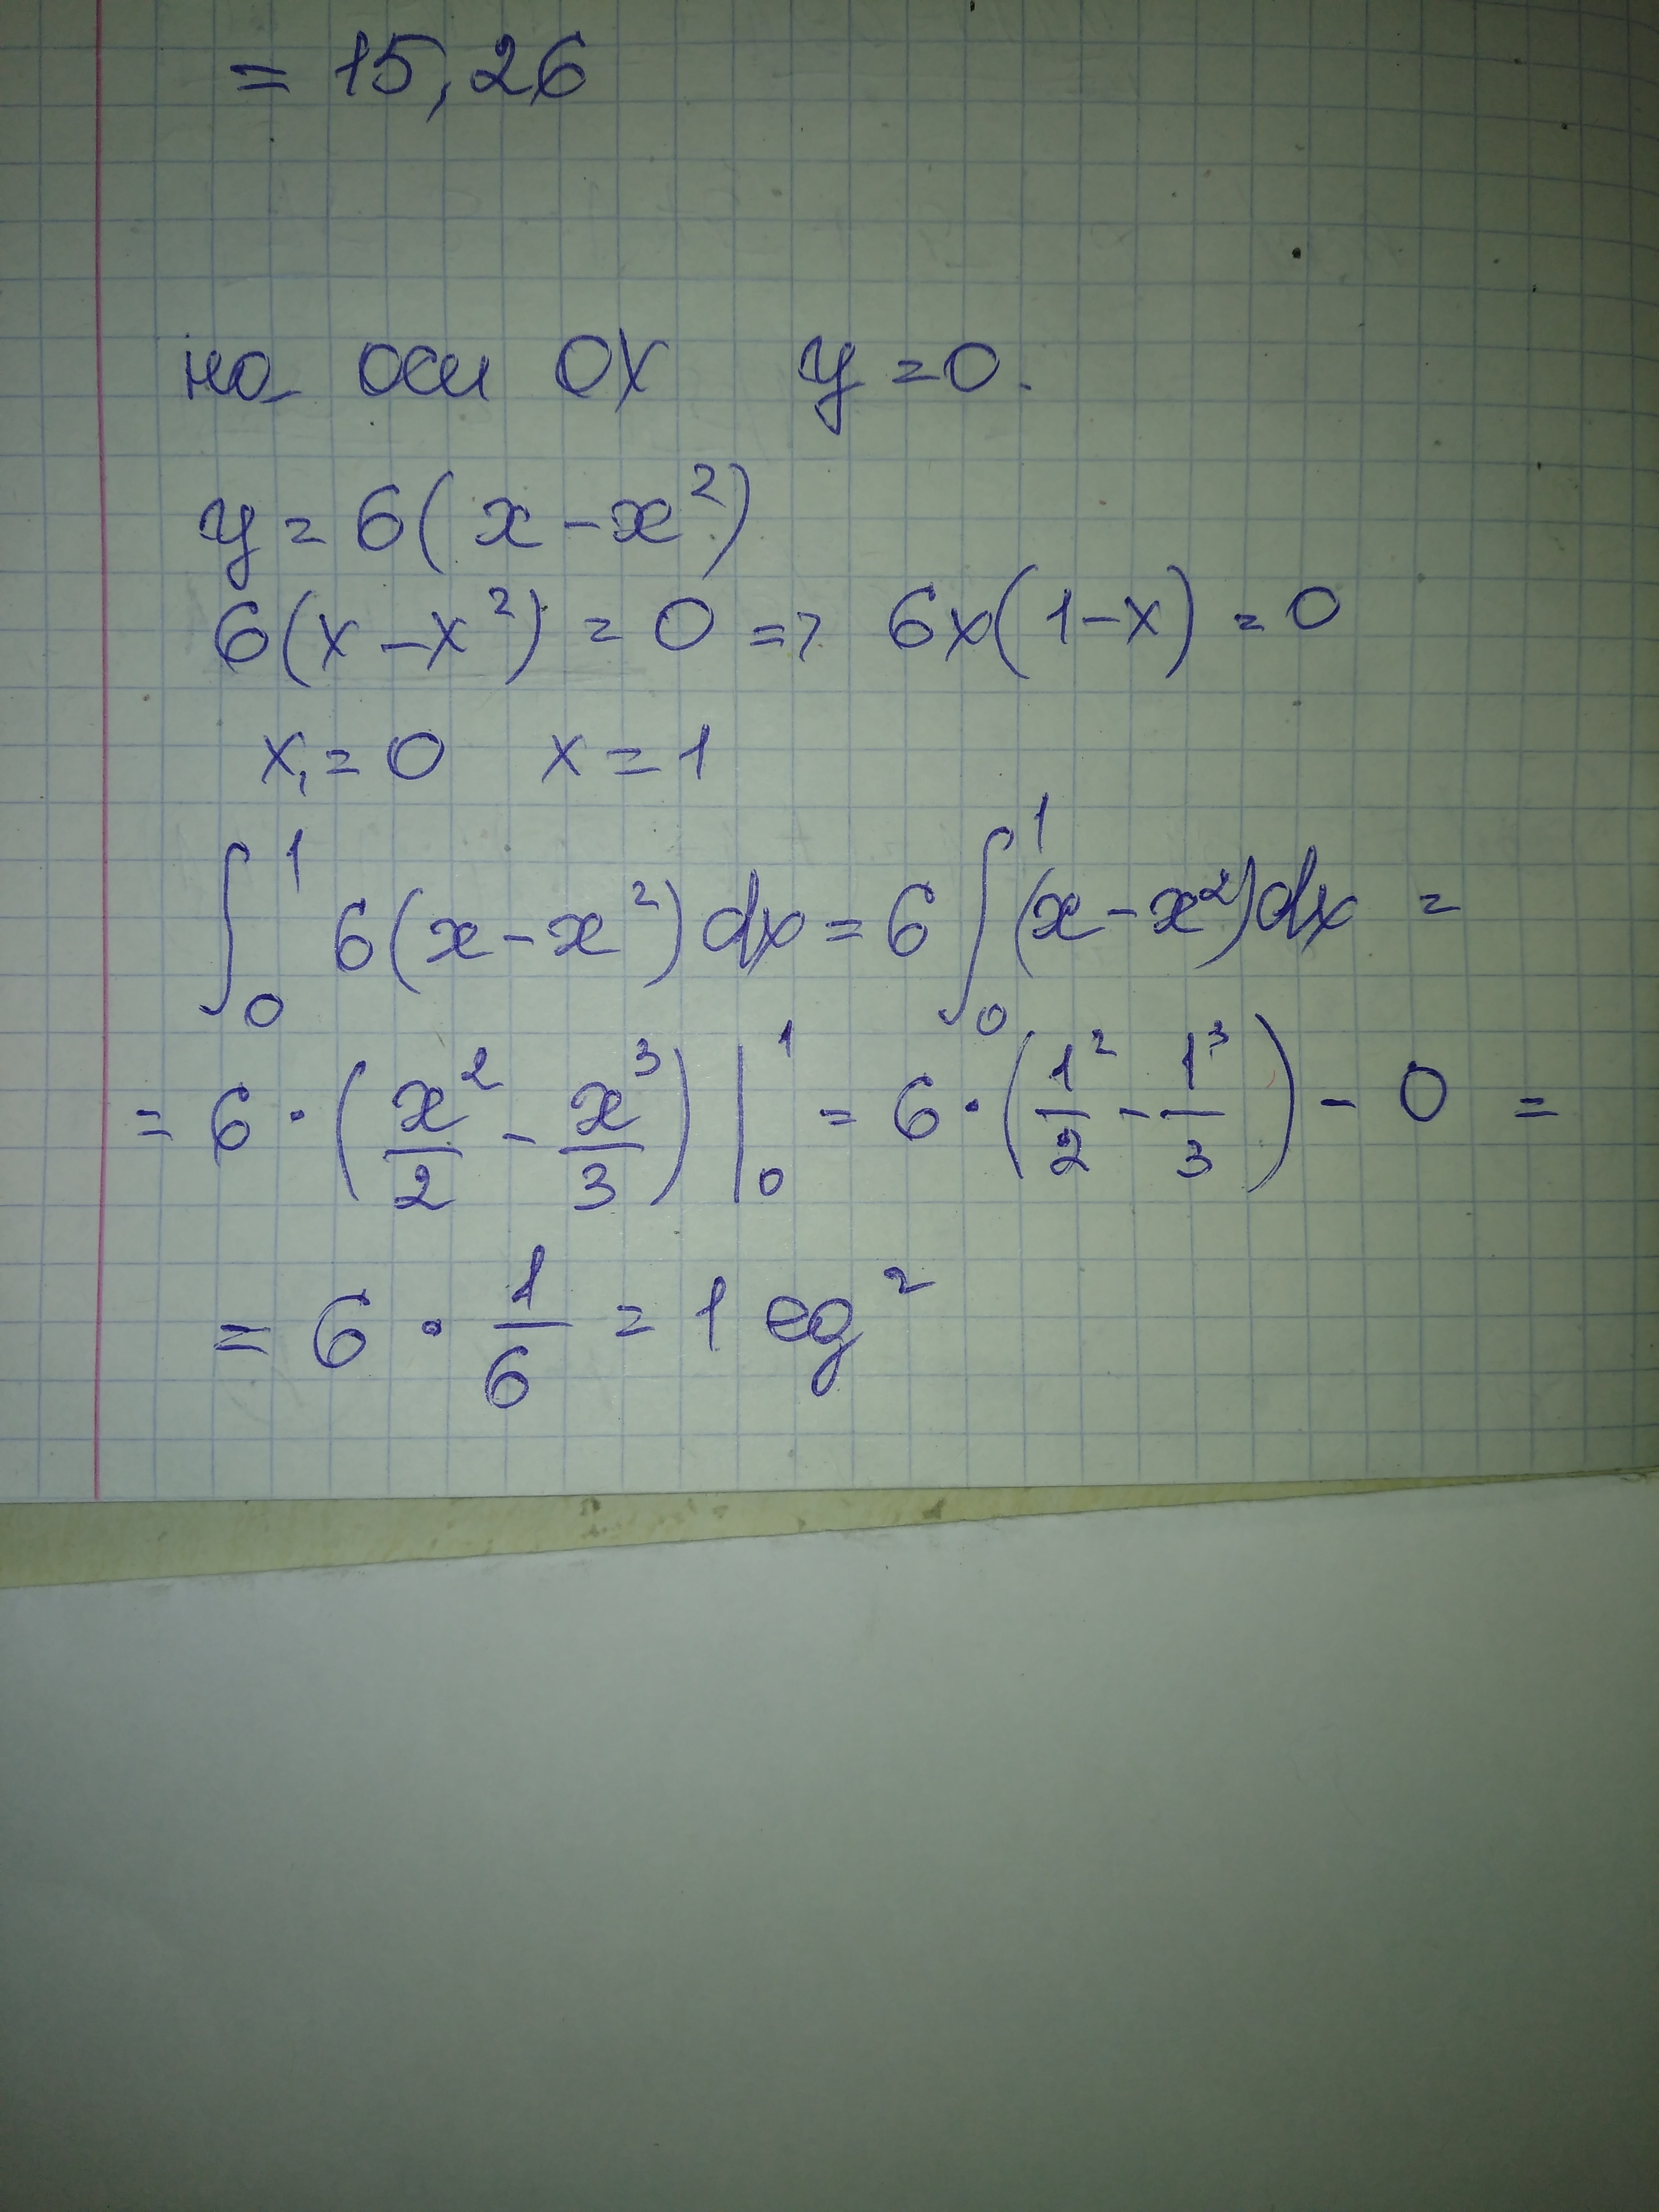 = 15,26
на оси OX y = 0.
y = 6(x - x²)
6(x - x²) = 0 => 6x(1 - x) = 0
x₁ = 0 x = 1
∫₀¹ 6(x - x²)dx = 6 ∫₀¹ (x - x²)dx =
= 6 · (x²/2 - x³/3) |₀¹ = 6 · (1²/2 - 1³/3) - 0 =
= 6 · 1/6 = 1 ед²